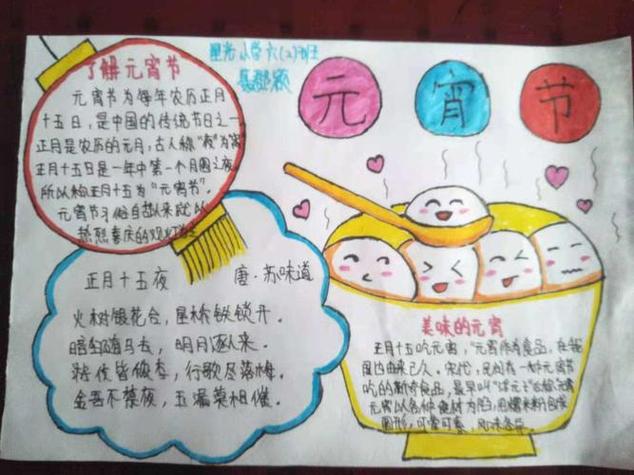 星光小学六(2)班
元 宵 节
了解元宵节
元宵节为每年农历正月
十五日，是中国的传统节日之一
正月是农历的元月，古人称"夜"为"宵"
正月十五日是一年中第一个月圆之夜
所以称正月十五为"元宵节"。
元宵节习俗自古以来就以
热烈喜庆的观灯
正月十五夜 唐·苏味道
火树银花合，星桥铁锁开。
暗尘随马去，明月逐人来。
行歌尽落梅。
金吾不禁夜，玉漏莫相催。
美味的元宵
正月十五吃元宵，"元宵"作为食品，在我
国也由来已久。宋代，民间有一种元宵节
吃的新奇食品，最早叫"浮元子"后称元宵
元宵以各种食材为馅，用糯米粉包成
圆形，可荤可素，风味各异。